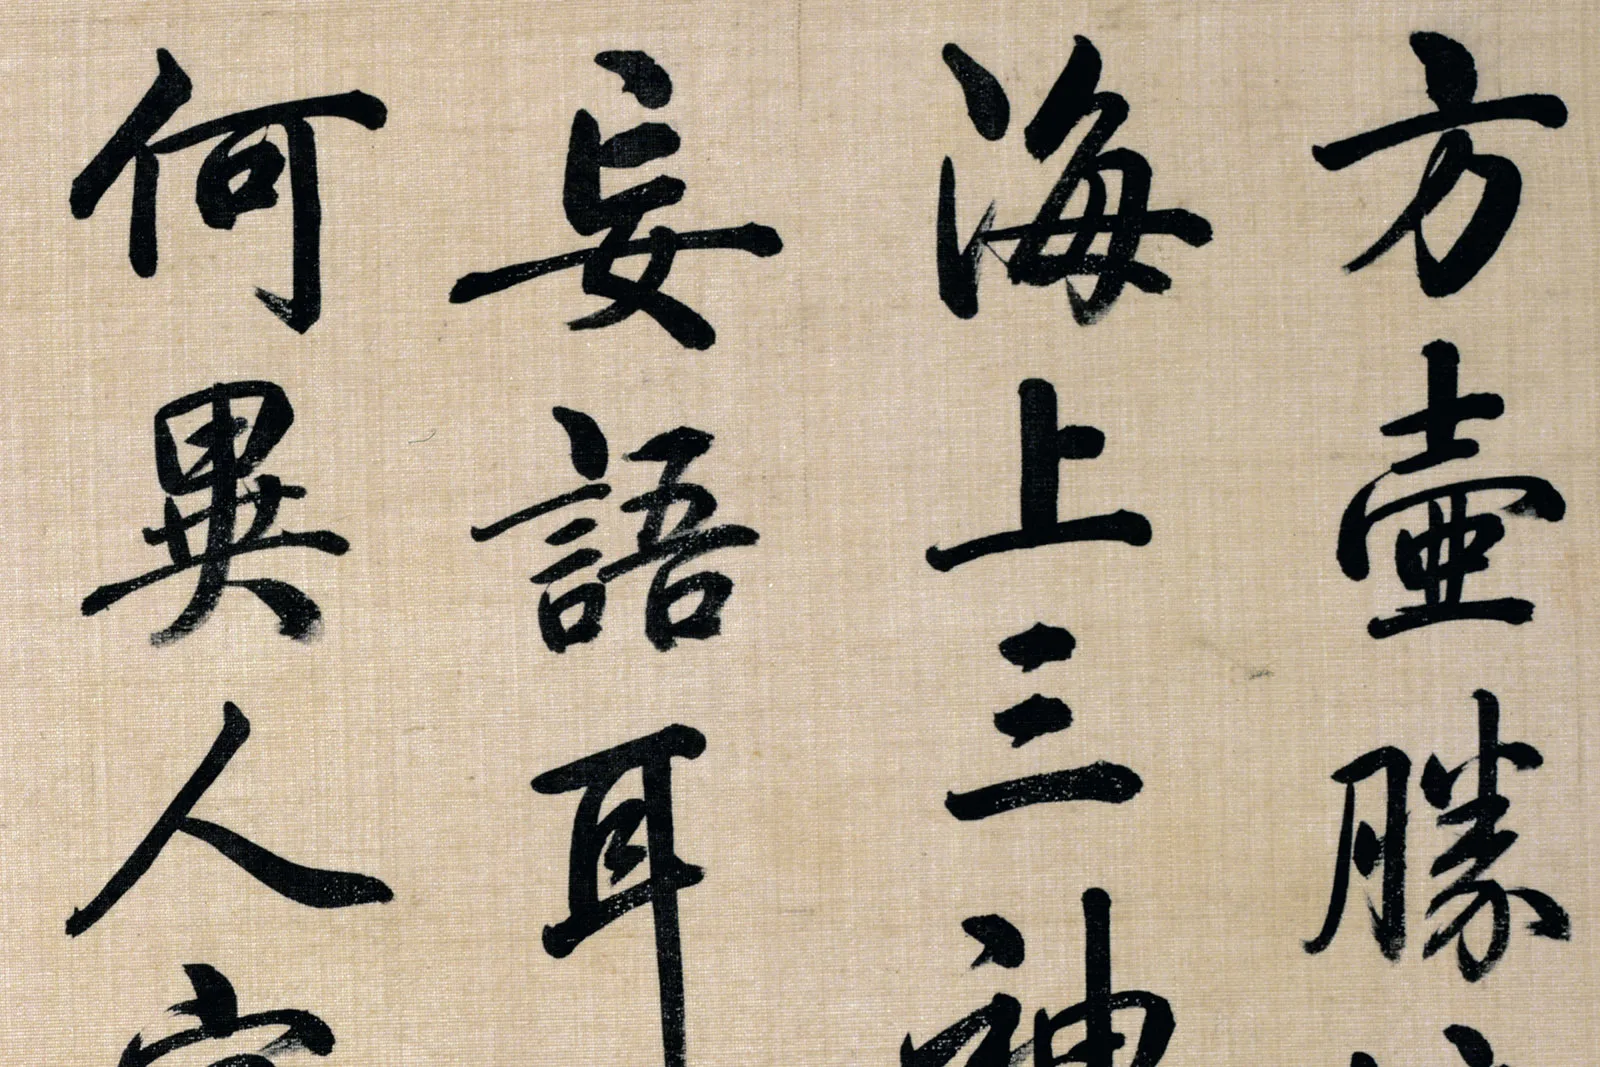 方壺勝
海上三神
妄語耳
何異人